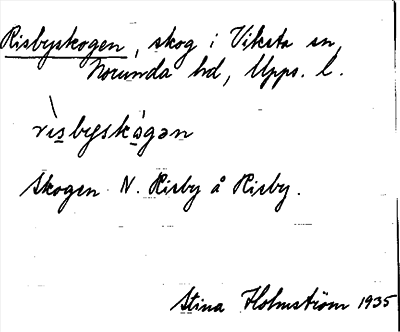 Risbyskogen, skog i Viksta sn,
Norunda hd, Upps. l.
rìsbyskágən
Skogen N. Risby å Risby.
Stina Holmström 1935